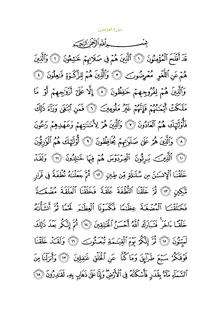 سورة المؤمنون
بِسْمِ اللَّهِ الرَّحْمَٰنِ الرَّحِيمِ
قَدْ أَفْلَحَ الْمُؤْمِنُونَ ١ الَّذِينَ هُمْ فِي صَلَاتِهِمْ خَاشِعُونَ ٢ وَالَّذِينَ
هُمْ عَنِ اللَّغْوِ مُعْرِضُونَ ٣ وَالَّذِينَ هُمْ لِلزَّكَاةِ فَاعِلُونَ ٤
وَالَّذِينَ هُمْ لِفُرُوجِهِمْ حَافِظُونَ ٥ إِلَّا عَلَىٰ أَزْوَاجِهِمْ أَوْ مَا
مَلَكَتْ أَيْمَانُهُمْ فَإِنَّهُمْ غَيْرُ مَلُومِينَ ٦ فَمَنِ ابْتَغَىٰ وَرَاءَ ذَٰلِكَ
فَأُولَٰئِكَ هُمُ الْعَادُونَ ٧ وَالَّذِينَ هُمْ لِأَمَانَاتِهِمْ وَعَهْدِهِمْ رَاعُونَ
٨ وَالَّذِينَ هُمْ عَلَىٰ صَلَوَاتِهِمْ يُحَافِظُونَ ٩ أُولَٰئِكَ هُمُ الْوَارِثُونَ
١٠ الَّذِينَ يَرِثُونَ الْفِرْدَوْسَ هُمْ فِيهَا خَالِدُونَ ١١ وَلَقَدْ
خَلَقْنَا الْإِنسَانَ مِن سُلَالَةٍ مِّن طِينٍ ١٢ ثُمَّ جَعَلْنَاهُ نُطْفَةً فِي قَرَارٍ
مَّكِينٍ ١٣ ثُمَّ خَلَقْنَا النُّطْفَةَ عَلَقَةً فَخَلَقْنَا الْعَلَقَةَ مُضْغَةً
فَخَلَقْنَا الْمُضْغَةَ عِظَامًا فَكَسَوْنَا الْعِظَامَ لَحْمًا ثُمَّ أَنشَأْنَاهُ
خَلْقًا آخَرَ فَتَبَارَكَ اللَّهُ أَحْسَنُ الْخَالِقِينَ ١٤ ثُمَّ إِنَّكُم بَعْدَ ذَٰلِكَ
لَمَيِّتُونَ ١٥ ثُمَّ إِنَّكُمْ يَوْمَ الْقِيَامَةِ تُبْعَثُونَ ١٦ وَلَقَدْ خَلَقْنَا
فَوْقَكُمْ سَبْعَ طَرَائِقَ وَمَا كُنَّا عَنِ الْخَلْقِ غَافِلِينَ ١٧ وَأَنزَلْنَا مِنَ
السَّمَاءِ مَاءً بِقَدَرٍ فَأَسْكَنَّاهُ فِي الْأَرْضِ وَإِنَّا عَلَىٰ ذَهَابٍ بِهِ لَقَادِرُونَ ١٨